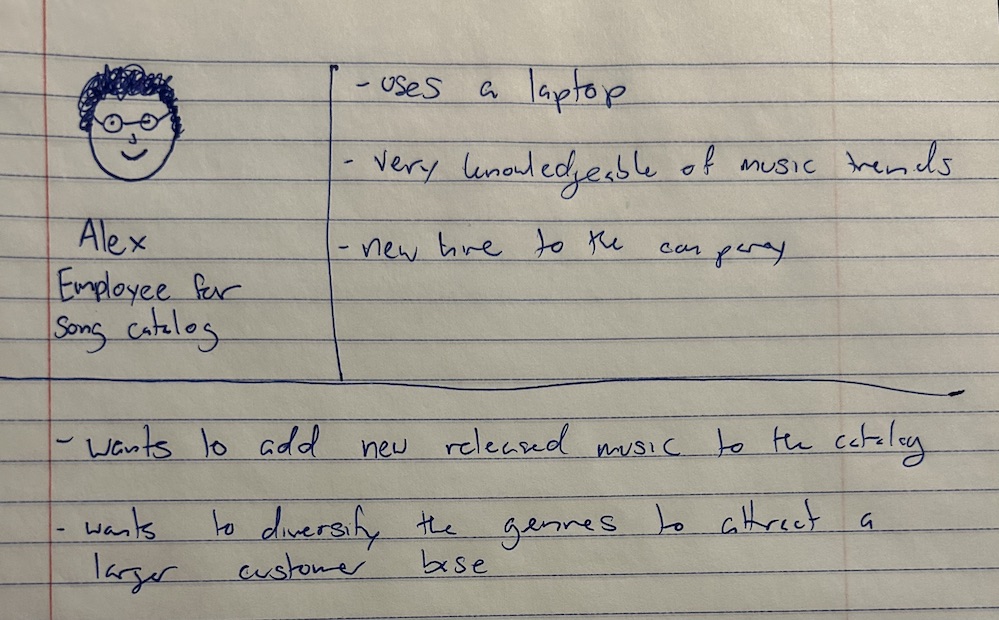 Alex
Employee for
song catalog
- uses a laptop
- very knowledgeable of music trends
- new hire to the company
- wants to add new released music to the catalog
- wants to diversify the genres to attract a
larger customer base